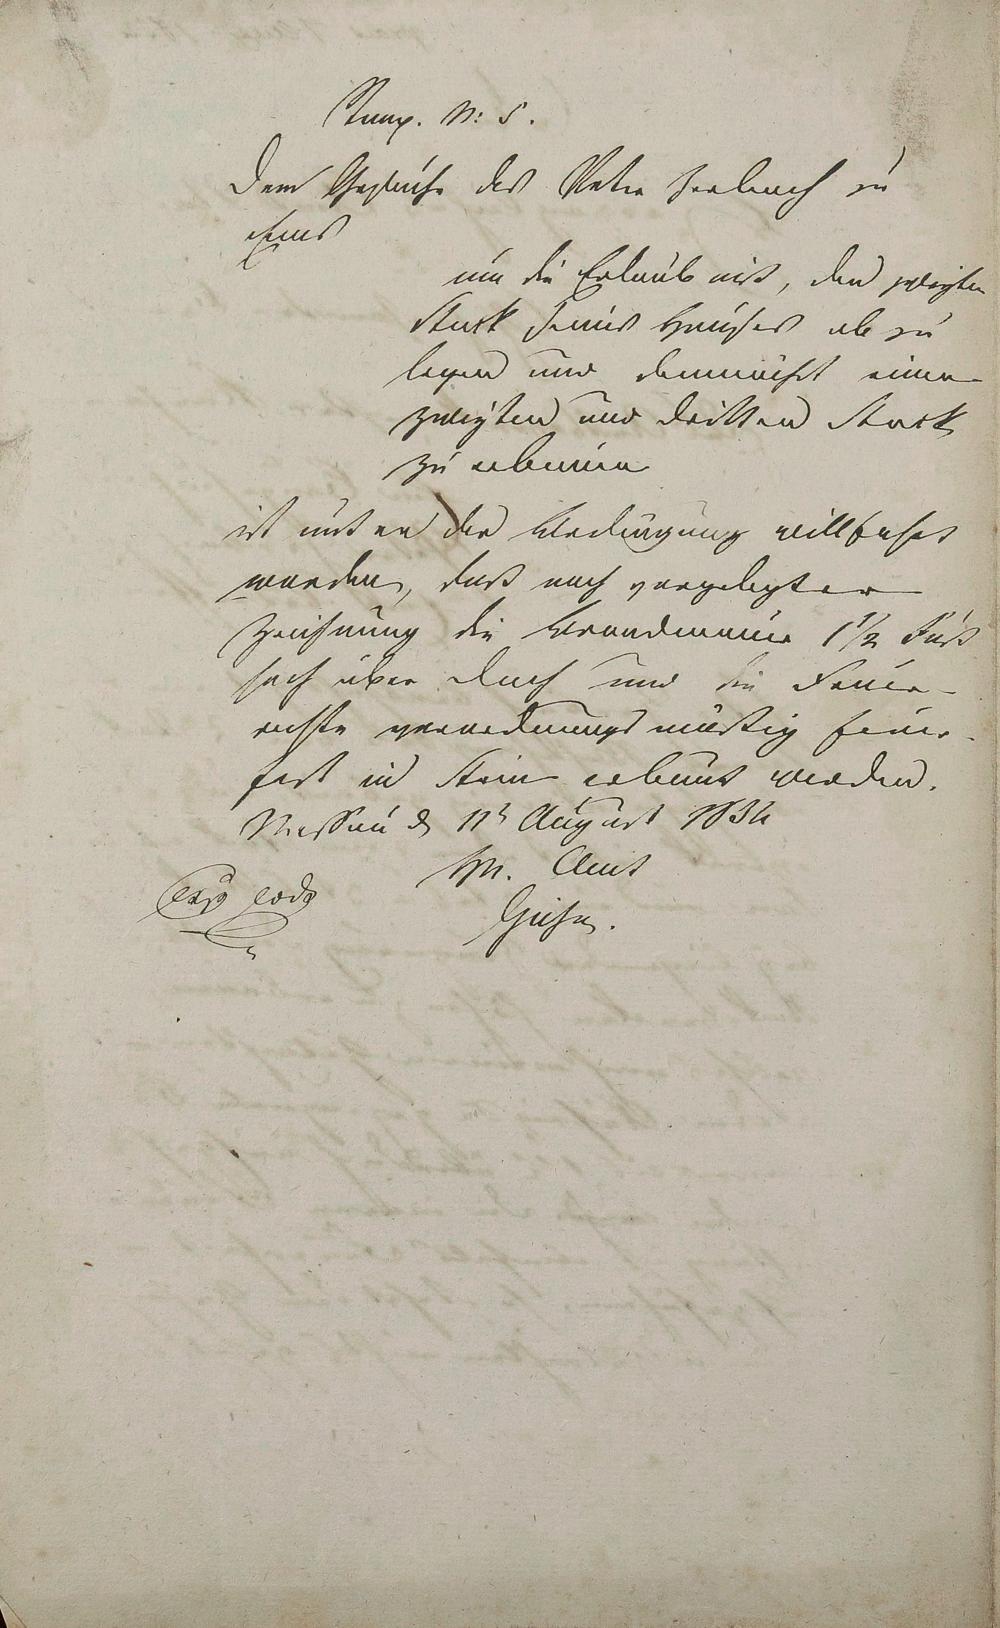 Stemp. N: 5.
Dem Gesuche des Peter Seelbach zu
Ems
um die Erlaubniß, den zweyten
Stock seines Hauses ab zu
legen und demnächst einen
zweyten und dritten Stock
zu erbauen
ist unter der Bedingung willfahrt
worden, daß nach vorgelegter
Zeichnung die Brandmauer 1 1/2 Fuß
hoch über Dach und die Feuer-
rechte verordnungsmäßig feuer-
fest in Stein erbaut werden.
Nassau d 11t August 1834
Hn. Amt